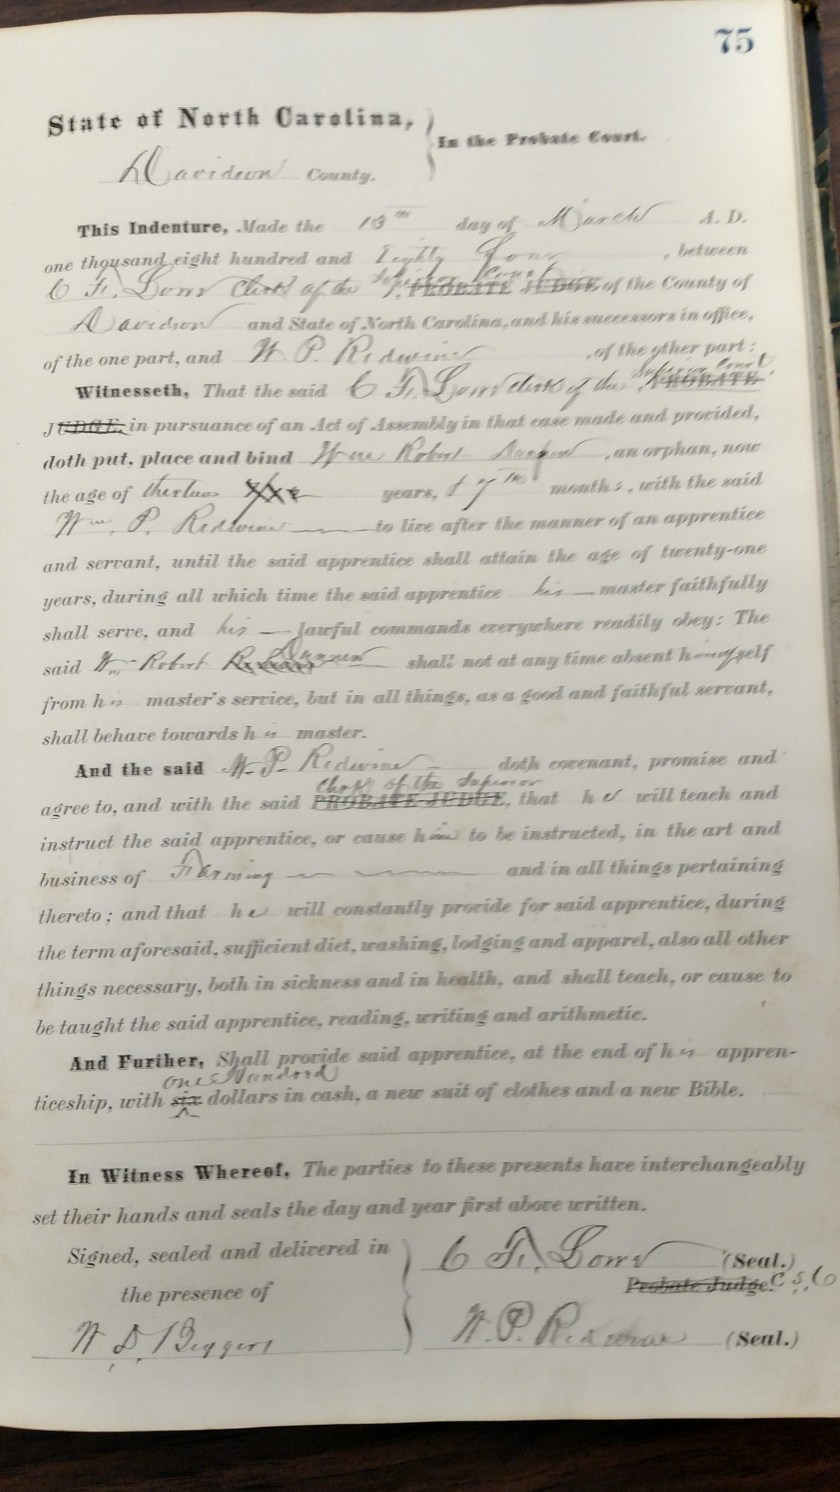 75
State of North Carolina,
In the Probate Court.
Davidson County.
This Indenture, Made the 10th day of March A. D.
one thousand eight hundred and Eighty Four, between
C F. Lowe Clerk of the Superior Court PROBATE JUDGE of the County of
Davidson and State of North Carolina, and his successors in office,
of the one part, and W. P. Redwine, of the other part:
Witnesseth, That the said C F. Lowe clerk of the Superior Court PROBATE
JUDGE, in pursuance of an Act of Assembly in that case made and provided,
doth put, place and bind Wm Robert, an orphan, now
the age of years, & 7 months, with the said
Wm. P. Redwine to live after the manner of an apprentice
and servant, until the said apprentice shall attain the age of twenty-one
years, during all which time the said apprentice his master faithfully
shall serve, and his lawful commands everywhere readily obey: The
said Wm Robert shall not at any time absent himself
from his master's service, but in all things, as a good and faithful servant,
shall behave towards his master.
And the said W. P. Redwine doth covenant, promise and
agree to, and with the said Clerk of the Superior PROBATE JUDGE, that he will teach and
instruct the said apprentice, or cause him to be instructed, in the art and
business of Farming and in all things pertaining
thereto; and that he will constantly provide for said apprentice, during
the term aforesaid, sufficient diet, washing, lodging and apparel, also all other
things necessary, both in sickness and in health, and shall teach, or cause to
be taught the said apprentice, reading, writing and arithmetic.
And Further, Shall provide said apprentice, at the end of his appren-
ticeship, with one Hundord six dollars in cash, a new suit of clothes and a new Bible.
In Witness Whereof, The parties to these presents have interchangeably
set their hands and seals the day and year first above written.
Signed, sealed and delivered in
the presence of
W. D. Beggers
C F. Lowe (Seal.)
Probate Judge. C. S. C
W. P. Redwine (Seal.)